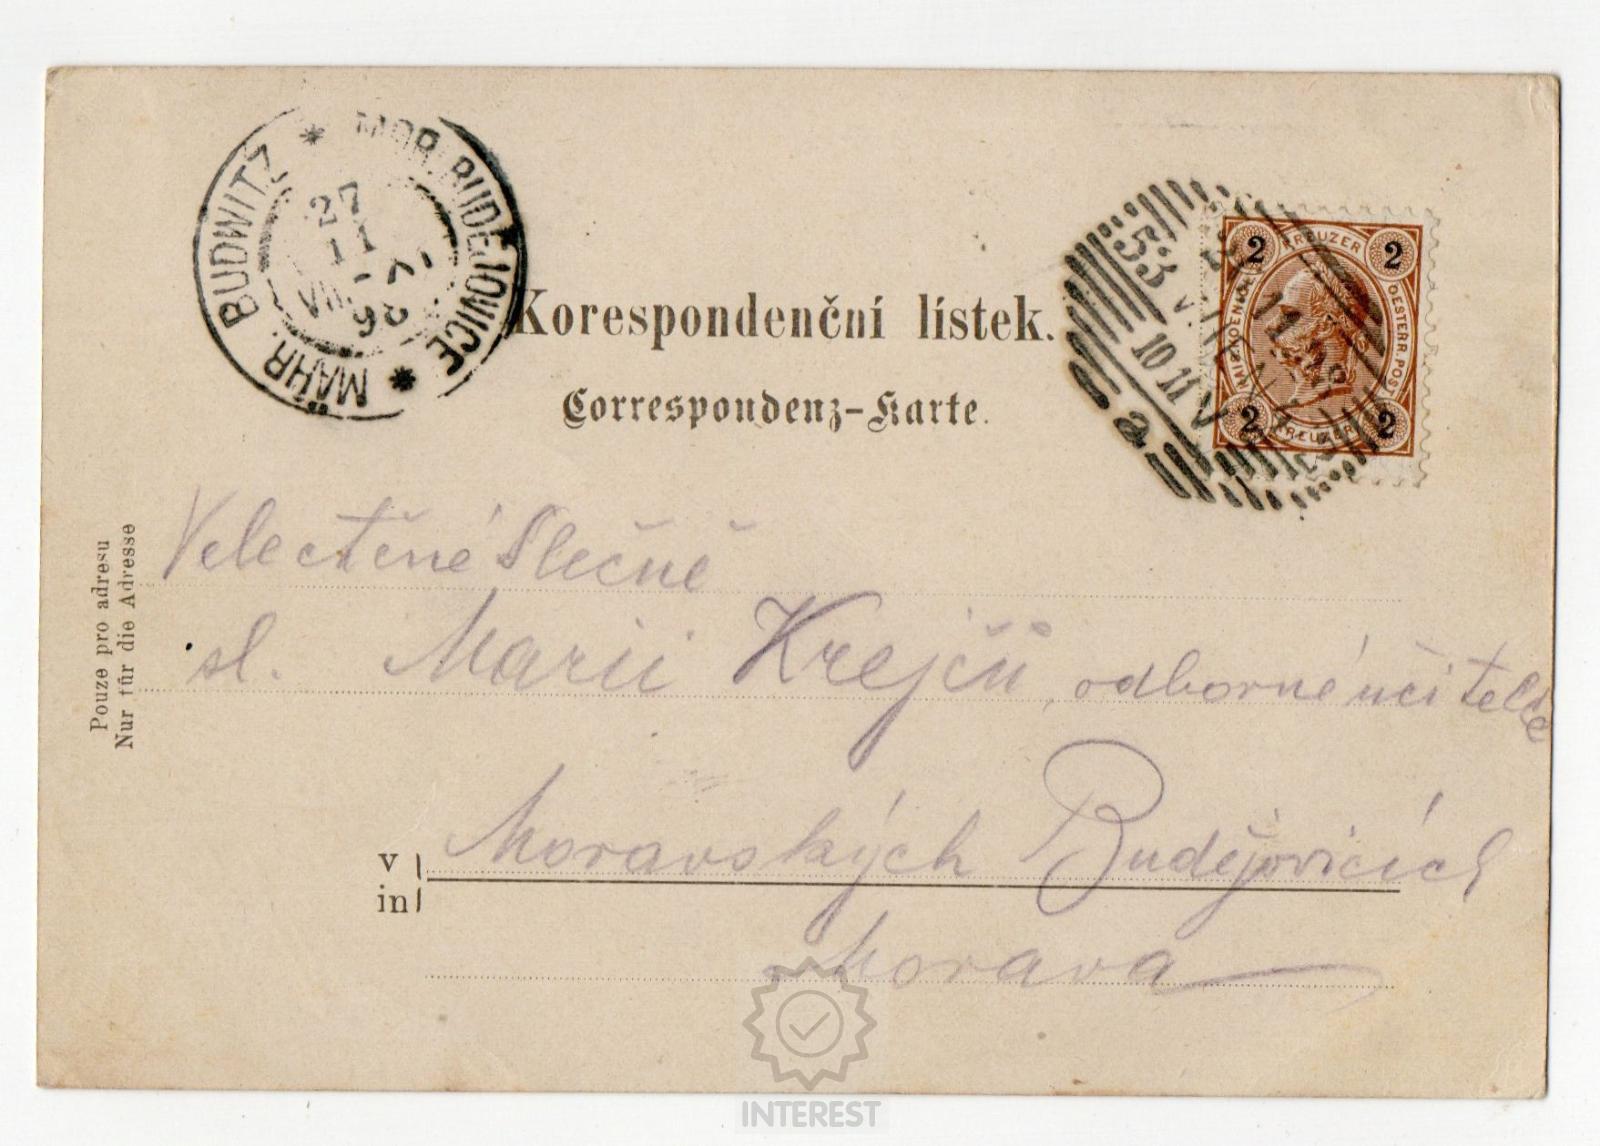 MOR. BUDĚJOVICE
MÄHR. BUDWITZ
27
Korespondenční lístek.
Correspondenz-Karte.
53
10 11 V
a
2 KREUZER 2
OESTERR. POST
2 KREUZER 2
Pouze pro adresu
Nur für die Adresse
Velectěné Slečně
sl. Marii Krejčů, odborné učitelce
v
in
Moravských Budějovicích
Morava
INTEREST